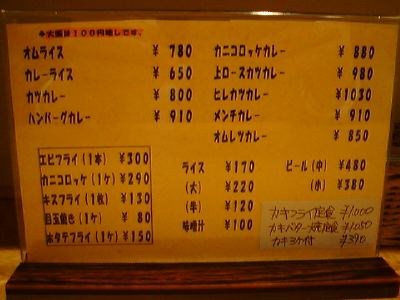 ◆大盛は100円増しです。
オムライス ¥ 780
カレーライス ¥ 650
カツカレー ¥ 800
ハンバーグカレー ¥ 910
カニコロッケカレー ¥ 880
上ロースカツカレー ¥ 980
ヒレカツカレー ¥1030
メンチカレー ¥ 910
オムレツカレー ¥ 850
エビフライ(1本) ¥300
カニコロッケ(1ケ) ¥290
キスフライ(1枚) ¥130
目玉焼き(1ケ) ¥ 80
ホタテフライ(1ケ) ¥150
ライス ¥170
(大) ¥220
(半) ¥120
味噌汁 ¥100
ビール(中) ¥480
(小) ¥380
カキフライ定食 ¥1,000
カキバター焼定食 ¥1,050
カキ3ケ付 ¥390